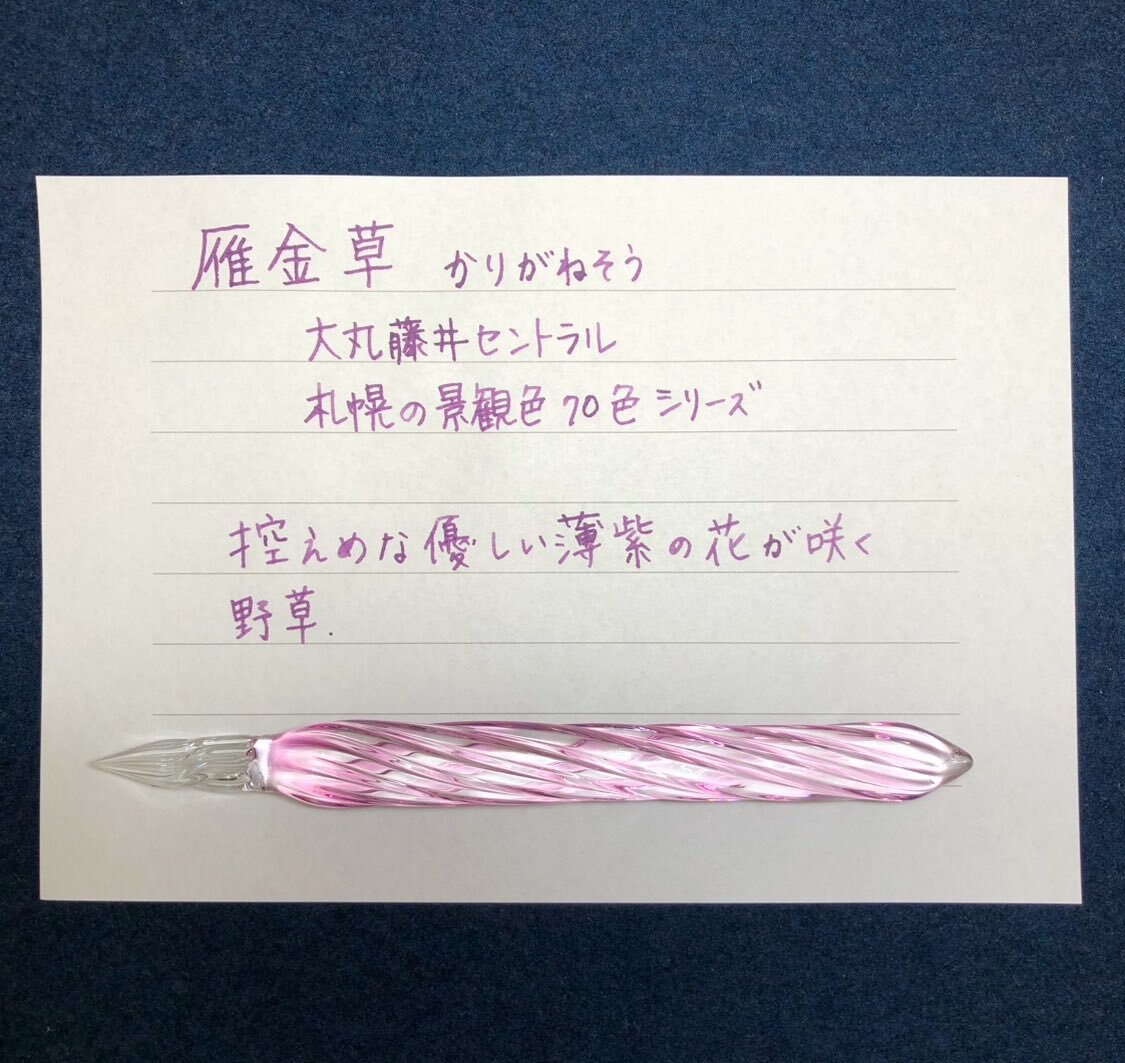 雁金草 かりがねそう
大丸藤井セントラル
札幌の景観色70色シリーズ
控えめな優しい薄紫の花が咲く
野草.